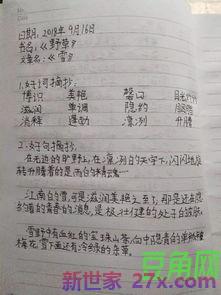 日期：2018年9月16日
书名：《野草》
文章名：《雪》
1.好词摘抄：
博识 美艳 磬口
滋润 单调 隐约 胭脂
消释 蓬勃 凛冽 升腾
2.好句摘抄：
在无边的旷野上，在凛冽的天宇下，闪闪地旋
转升腾着的是雨的精魂……
江南的雪，可是滋润美艳之至了，那是还在隐
约着的青春的消息，是极壮健的处子的皮肤。
雪野中有血红的宝珠山茶，白中隐青的单瓣
梅花，雪下面还有冷绿的杂草。
豆角网
新世家 27x.com